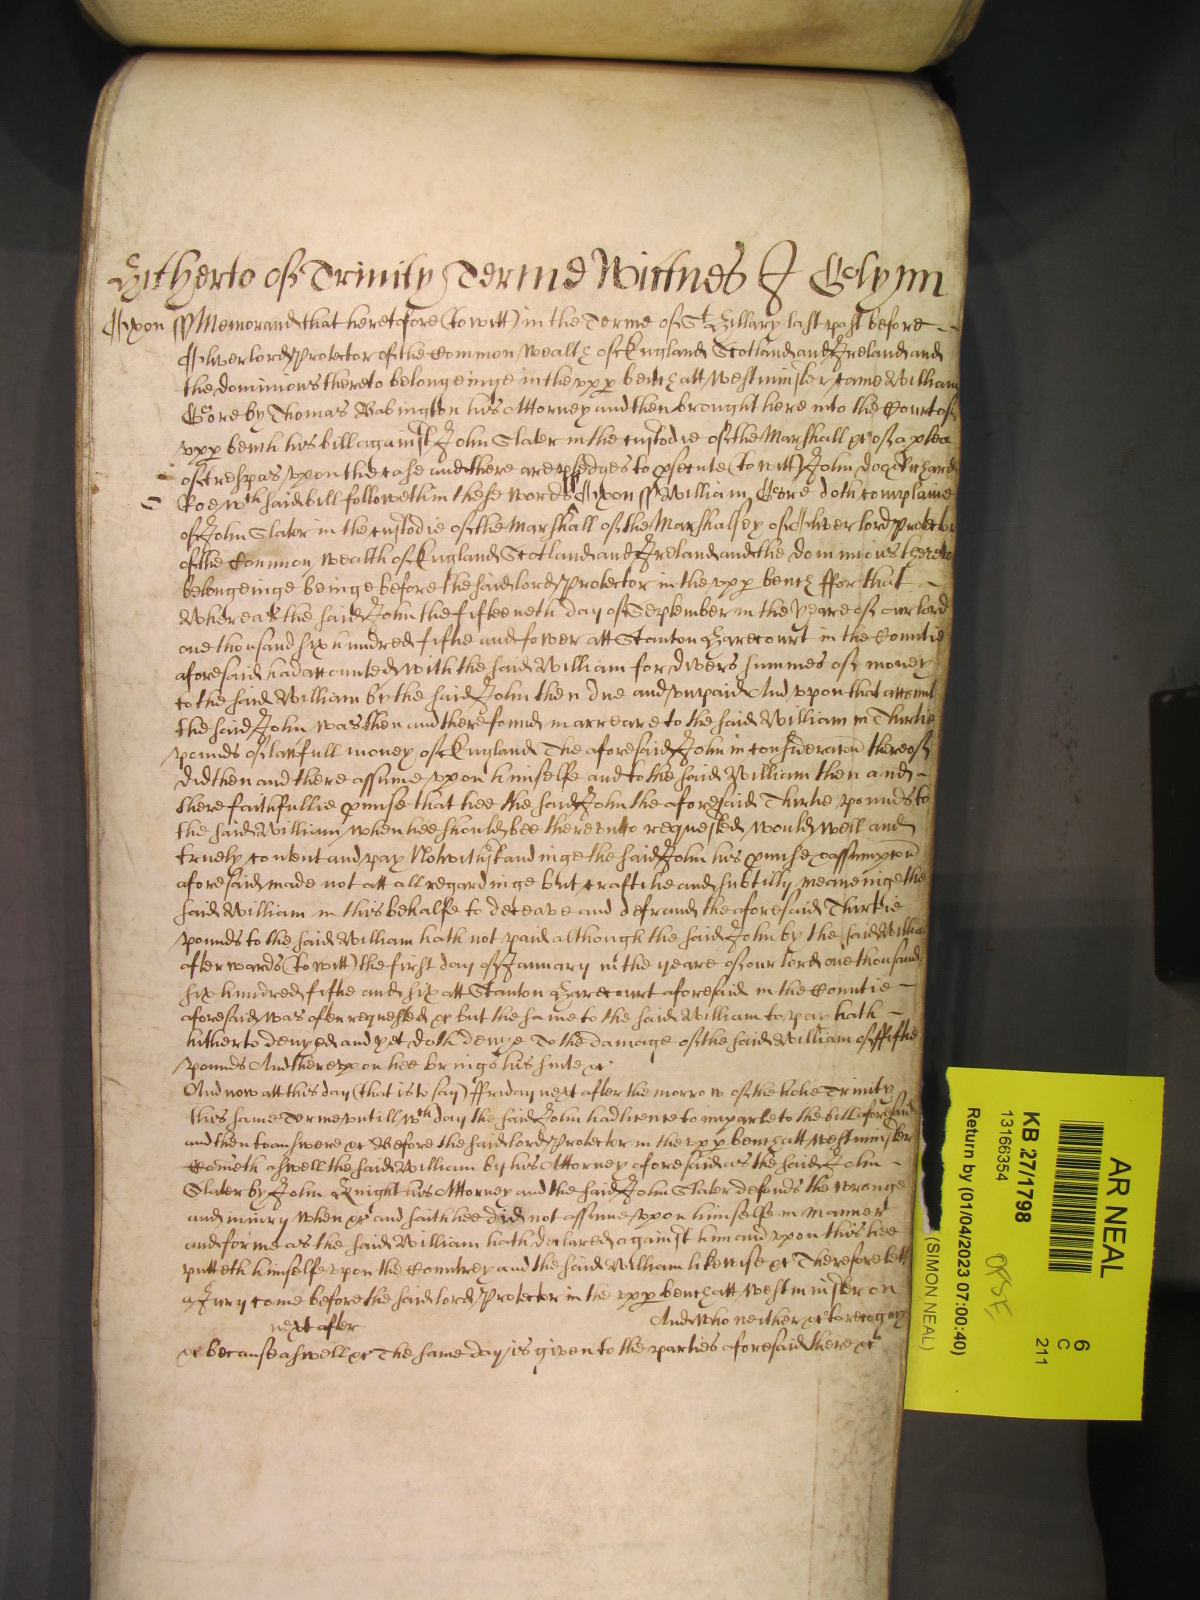 Hitherto of Trinity Terme Wittnes J Glynn
Oxon ss Memorand that heretofore (to witt) in the Terme of St Hillary last past before
Oliver lord Protector of the Common Wealth of England Scotland and Ireland and
the dominions thereto belongeinge in the upp bench att Westminster came William
Gore by Thomas Babington his Attorney and then brought here into the Court of
upp bench his bill against John Slater in the custodie of the Marshall &c of a plea
of trespas upon the case and there are pledges to psecute (to witt) John Doo & Richard
Roe wch said bill followeth in these words ss Oxon ss William Gore doth complaine
of John Slater in the custodie of the Marshall of the Marshalsey of Oliver lord Protector
of the Common Wealth of England Scotland and Ireland and the dominions thereto
belongeinge beinge before the said lord Protector in the upp bench ffor that
Whereas the said John the fifteeneth day of September in the yeare of our lord
one thousand six hundred fiftie and fower att Stanton Harecourt in the Countie
aforesaid had accounted with the said William for divers summes of money
to the said William by the said John then due and unpaid And upon that accompt
the said John was then and there found in arreare to the said William in Thirtie
pounds of lawfull money of England The aforesaid John in consideracion thereof
did then and there assume upon himselfe and to the said William then and
there faithfullie pmise that hee the said John the aforesaid Thirtie pounds to
the said William when hee should bee thereunto requested would well and
truely content and pay Notwithstandinge the said John his pmise & assumpcion
aforesaid made not att all regardinge but craftilie and subtilly meaneinge the
said William in this behalfe to deceave and defraud the aforesaid Thirtie
pounds to the said William hath not paid although the said John by the said William
afterwards (to witt) the first day of January in the yeare of our lord one thousand
six hundred fiftie and six att Stanton Harecourt aforesaid in the Countie
aforesaid was often requested &c but the same to the said William to pay hath
hitherto denyed and yet doth denye To the damage of the said William of ffiftie
pounds And thereupon hee brings his suite &c
And now att this day (that is to say) ffriday next after the morrow of the holie Trinity
this same Terme untill wch day the said John had licence to imparle to the bill aforesaid
and then to answere &c Before the said lord Protector in the upp bench att Westminster
Cometh aswell the said William by his Attorney aforesaid as the said John
Slater by John Knight his Attorney and the said John Slater defends the wronge
and iniury when &c and saith hee did not assume upon himselfe in manner
and forme as the said William hath declared against him and upon this hee
putteth himselfe upon the Countrey and the said William likewise &c Therefore lett
a Jury come before the said lord Protector in the upp bench att Westminster on
next after And who neither &c to recogniz
&c because aswell &c The same day is given to the parties aforesaid there &c
AR NEAL
6
C
211
KB 27/1798
13166354
OPSE
Return by (01/04/2023 07:00:40)
(SIMON NEAL)